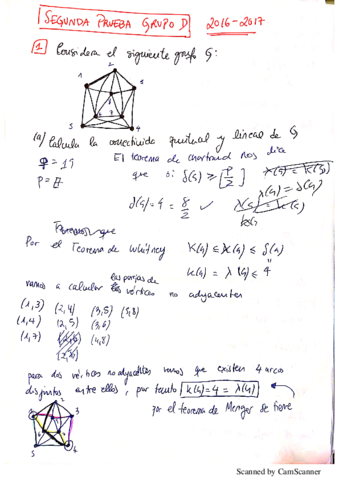 SEGUNDA PRUEBA GRUPO D 2016-2017
1 Considera el siguiente grafo G:
1 2 3
5 4
(a) Calcula la conectividad puntual y lineal de G
q = 19 El teorema de chartrand nos dice
p = 8 que si δ(G) ≥ [p/2]
λ(G) = δ(G)
δ(G) = 4 = 8/2 ✓
Tenemos que
Por el Teorema de Whitney K(G) ≤ λ(G) ≤ δ(G)
k(G) = λ(G) ≤ 4
vamos a calcular las parejas de vértices no adyacentes
(1,3) (2,4) (3,5) (5,8)
(1,4) (2,5) (3,6)
(1,7) (4,8)
para dos vértices no adyacentes vemos que existen 4 arcos
disjuntos entre ellos, por tanto k(G) = 4 = λ(G)
por el teorema de Menger se tiene
1 2 3
5 4
Scanned by CamScanner